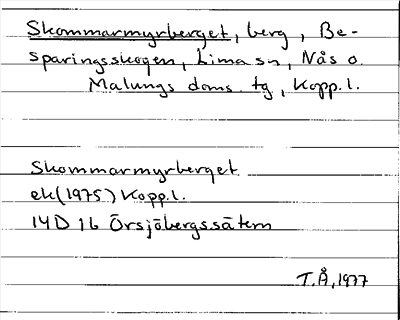 Skommarmyrberget, berg, Be-
sparingsskogen, Lima sn, Nås o.
Malungs doms. tg, Kopp.l.
Skommarmyrberget
ek(1975) Kopp.l.
14D 1b Örsjöbergssätern
T.Å, 1977